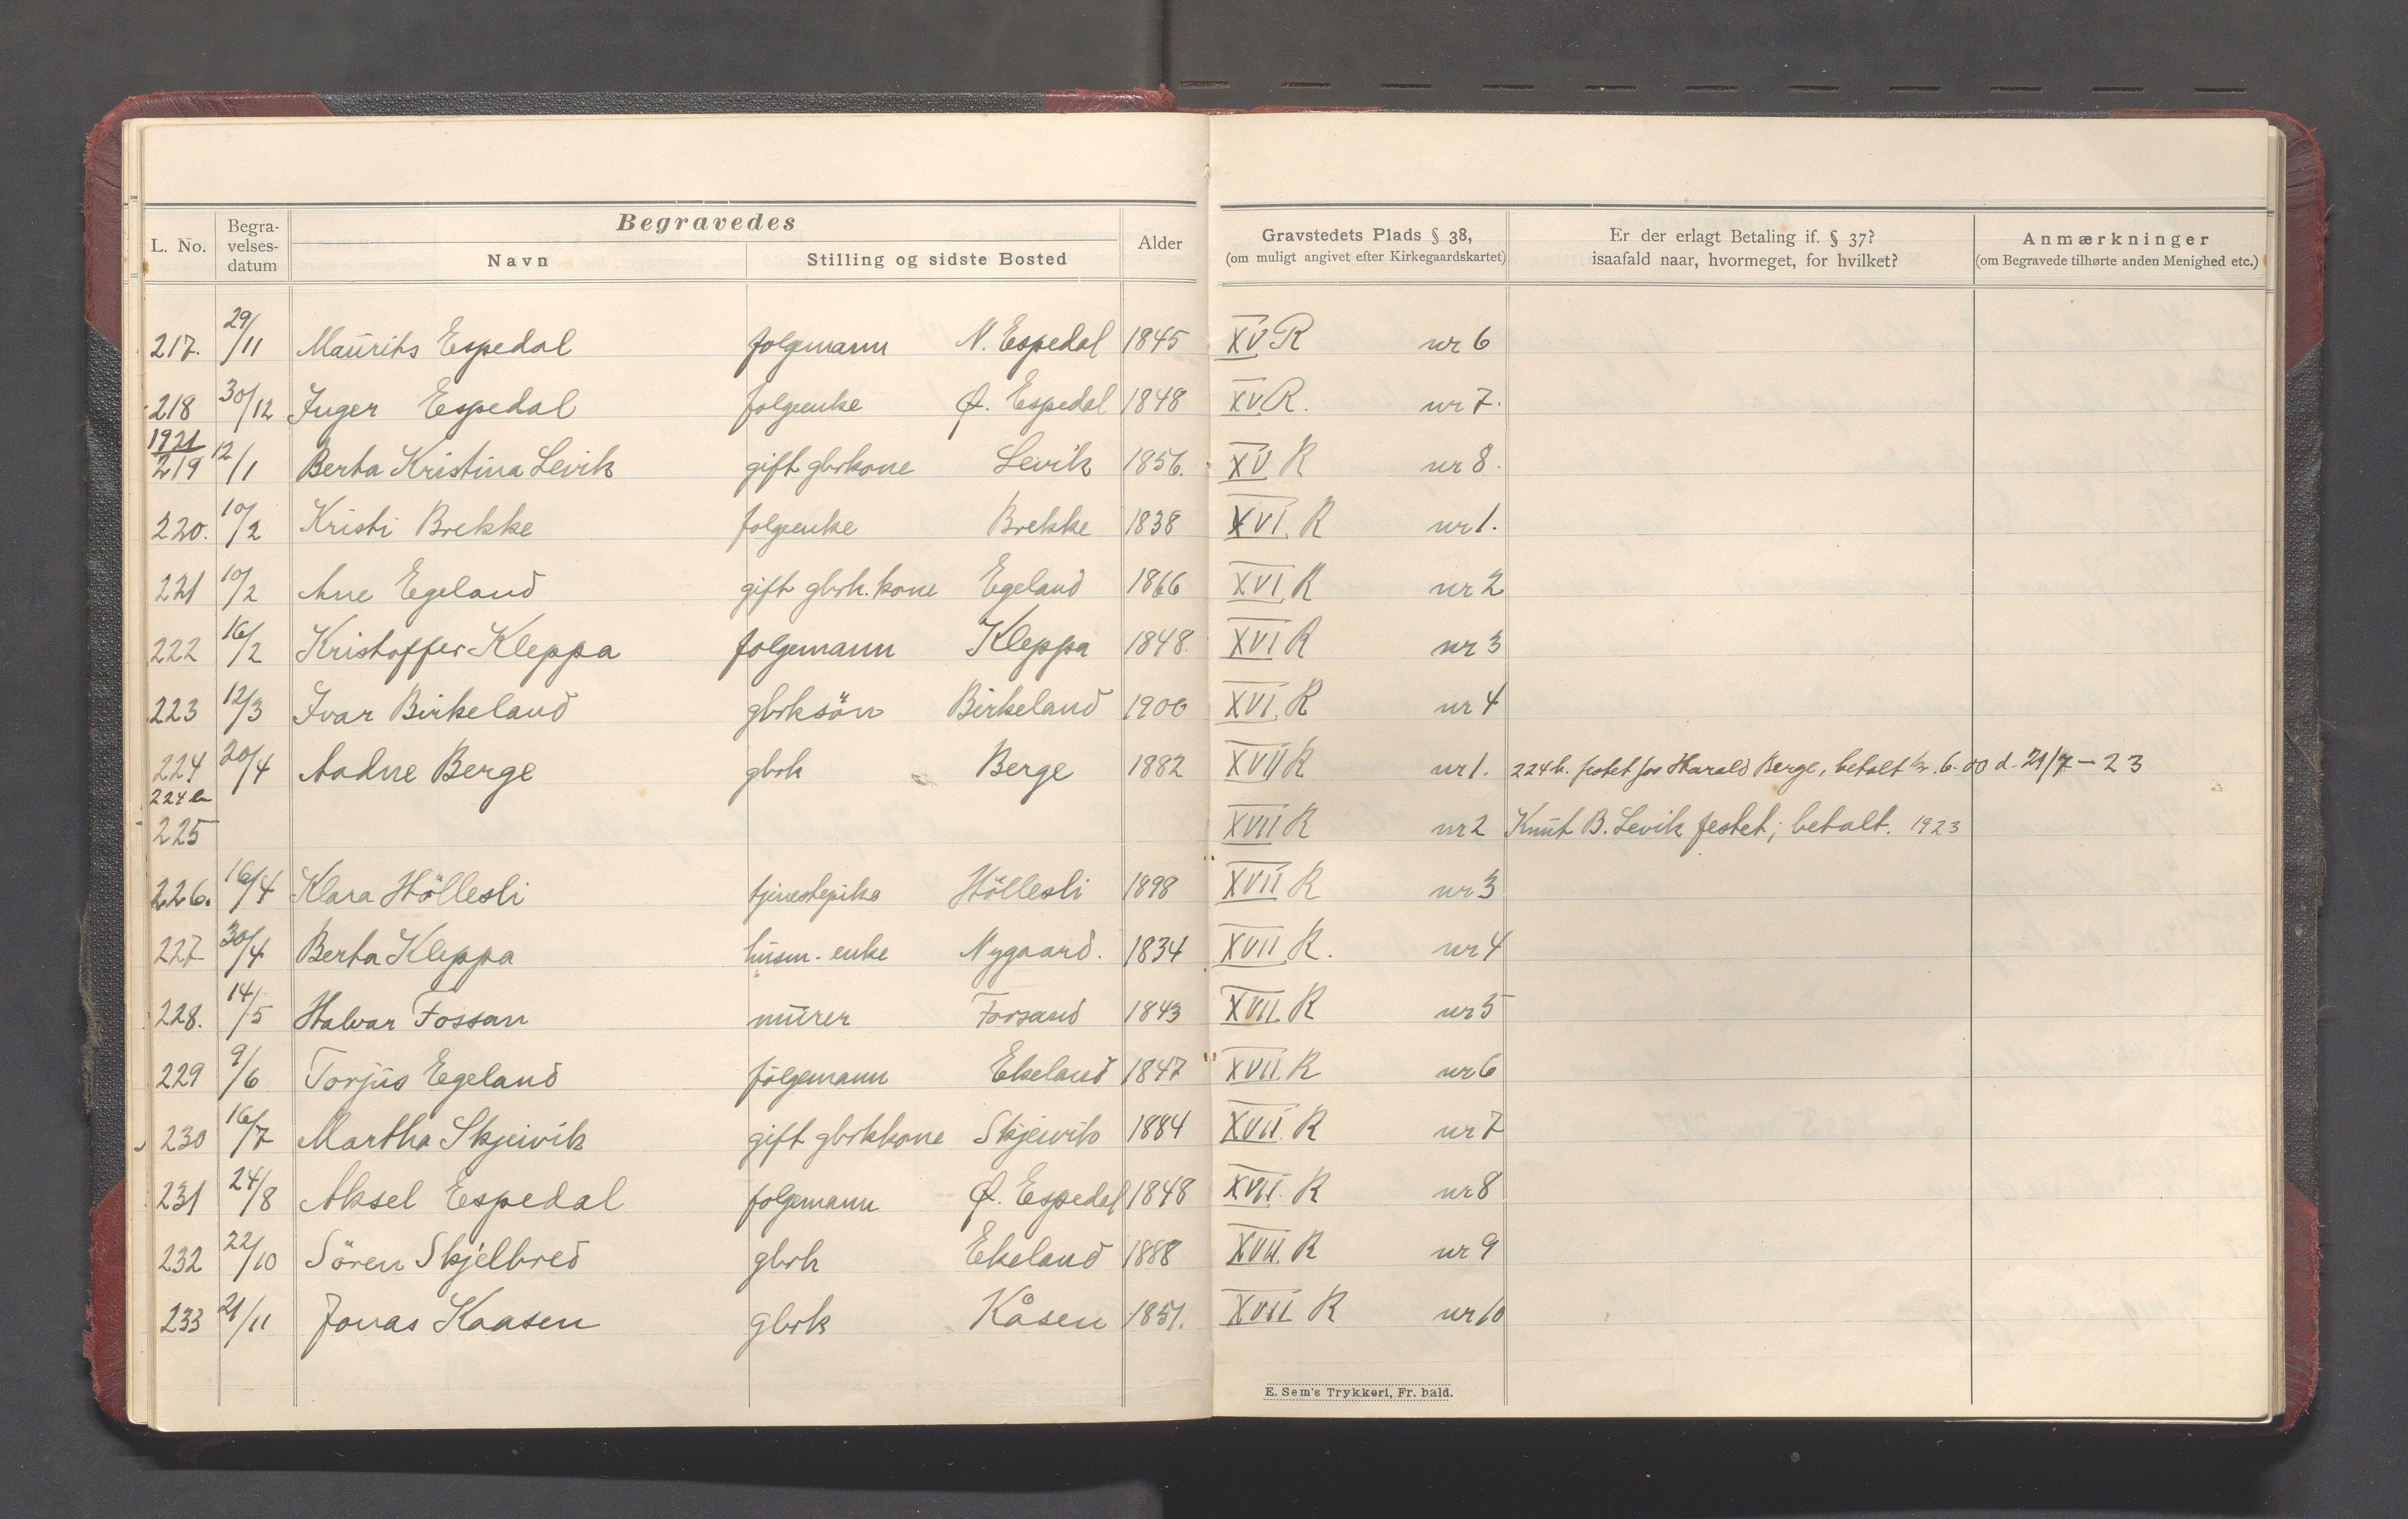 L. No.
Begra-
velses-
datum
Begravedes
Navn
Stilling og sidste Bosted
Alder
Gravstedets Plads § 38,
(om muligt angivet efter Kirkegaardskartet)
Er der erlagt Betaling if. § 37?
isaafald naar, hvormeget, for hvilket?
Anmærkninger
(om Begravede tilhørte anden Menighed etc.)
217. 29/11 Maurits Espedal folgemann N. Espedal 1845 XV R nr 6
218 30/12 Inger Espedal folgeenke Ø. Espedal 1848 XV R. nr 7.
1921
219 12/1 Berta Kristina Levik gift gbrkone Levik 1856. XV R nr 8.
220. 10/2 Kristi Brekke folgeenke Brekke 1838 XVI. R nr 1.
221 10/2 Ane Egeland gift gbrk. kone Egeland 1866 XVI R nr 2
222 16/2 Kristoffer Kleppa folgemann Kleppa 1848. XVI R nr 3
223 12/3 Ivar Birkeland gbrksön Birkeland 1900 XVI. R nr 4
224 20/4 Aadne Berge gbrk Berge 1882 XVII R nr 1. 224b. festet for Harald Berge, betalt kr. 6.00 d. 21/7 - 23
224b
225 XVII R nr 2 Knut B. Levik festet; betalt. 1923
226. 16/4 Klara Höllesli tjenestepike Höllesli 1898 XVII R nr 3
227 30/4 Berta Kleppa husm. enke Nygaard. 1834 XVII R. nr 4
228. 14/5 Halvar Fossan murer Forsand 1843 XVII R nr 5
229 9/6 Torjus Egeland fölgemann Ekeland 1847 XVII. R nr 6
230 16/7 Martha Skjeivik gift gbrkkone Skjeivik 1884 XVII R nr 7
231 24/8 Aksel Espedal folgemann Ø. Espedal 1848 XVII. R nr 8
232 22/10 Sören Skjelbred gbrk Ekeland 1888 XVII. R nr 9
233 21/11 Jonas Kaasen gbrk Kåsen 1851. XVII R nr 10
E. Sem's Trykkeri, Fr. hald.